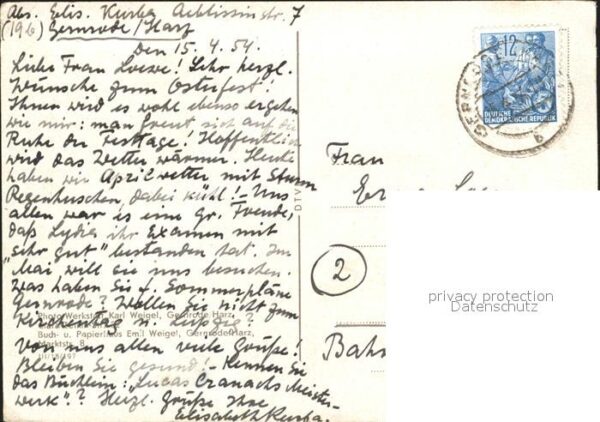 Abs. Elis. Kurba Äbtissinstr. 7
(19b) Gernrode/Harz
Den 15.4.54.
Liebe Frau Loewe! Sehr herzl.
Wünsche zum Osterfest!
Ihnen wird es wohl ebenso ergehen
wie mir: man freut sich auf die
Ruhe der Festtage! Hoffentlich
wird das Wetter wärmer. Heute
haben wir Aprilwetter mit Sturm
Regenhuschen, dabei kühl! – Uns
allen war es eine gr. Freude,
daß Lydia ihr Examen mit
"sehr gut" bestanden hat. Im
Mai will sie uns besuchen.
Was haben Sie f. Sommerpläne
Gernrode? Wollen Sie nicht zum
Kirchentag n. Leipzig?
Von uns allen viele Grüße!
Bleiben Sie gesund! – Kennen Sie
das Büchlein: "Lucas Cranachs Meister-
werk"? Herzl. Grüße Ihre
Elisabeth Kurba.
Photo-Werkstatt Karl Weigel, Gernrode-Harz,
Buch- u. Papierhaus Emil Weigel, Gernrode-Harz,
Marktstr. 8
III/18/197
DTV
12
DEUTSCHE
DEMOKRATISCHE REPUBLIK
GERNRODE
b
Frau
2
Bah
privacy protection
Datenschutz